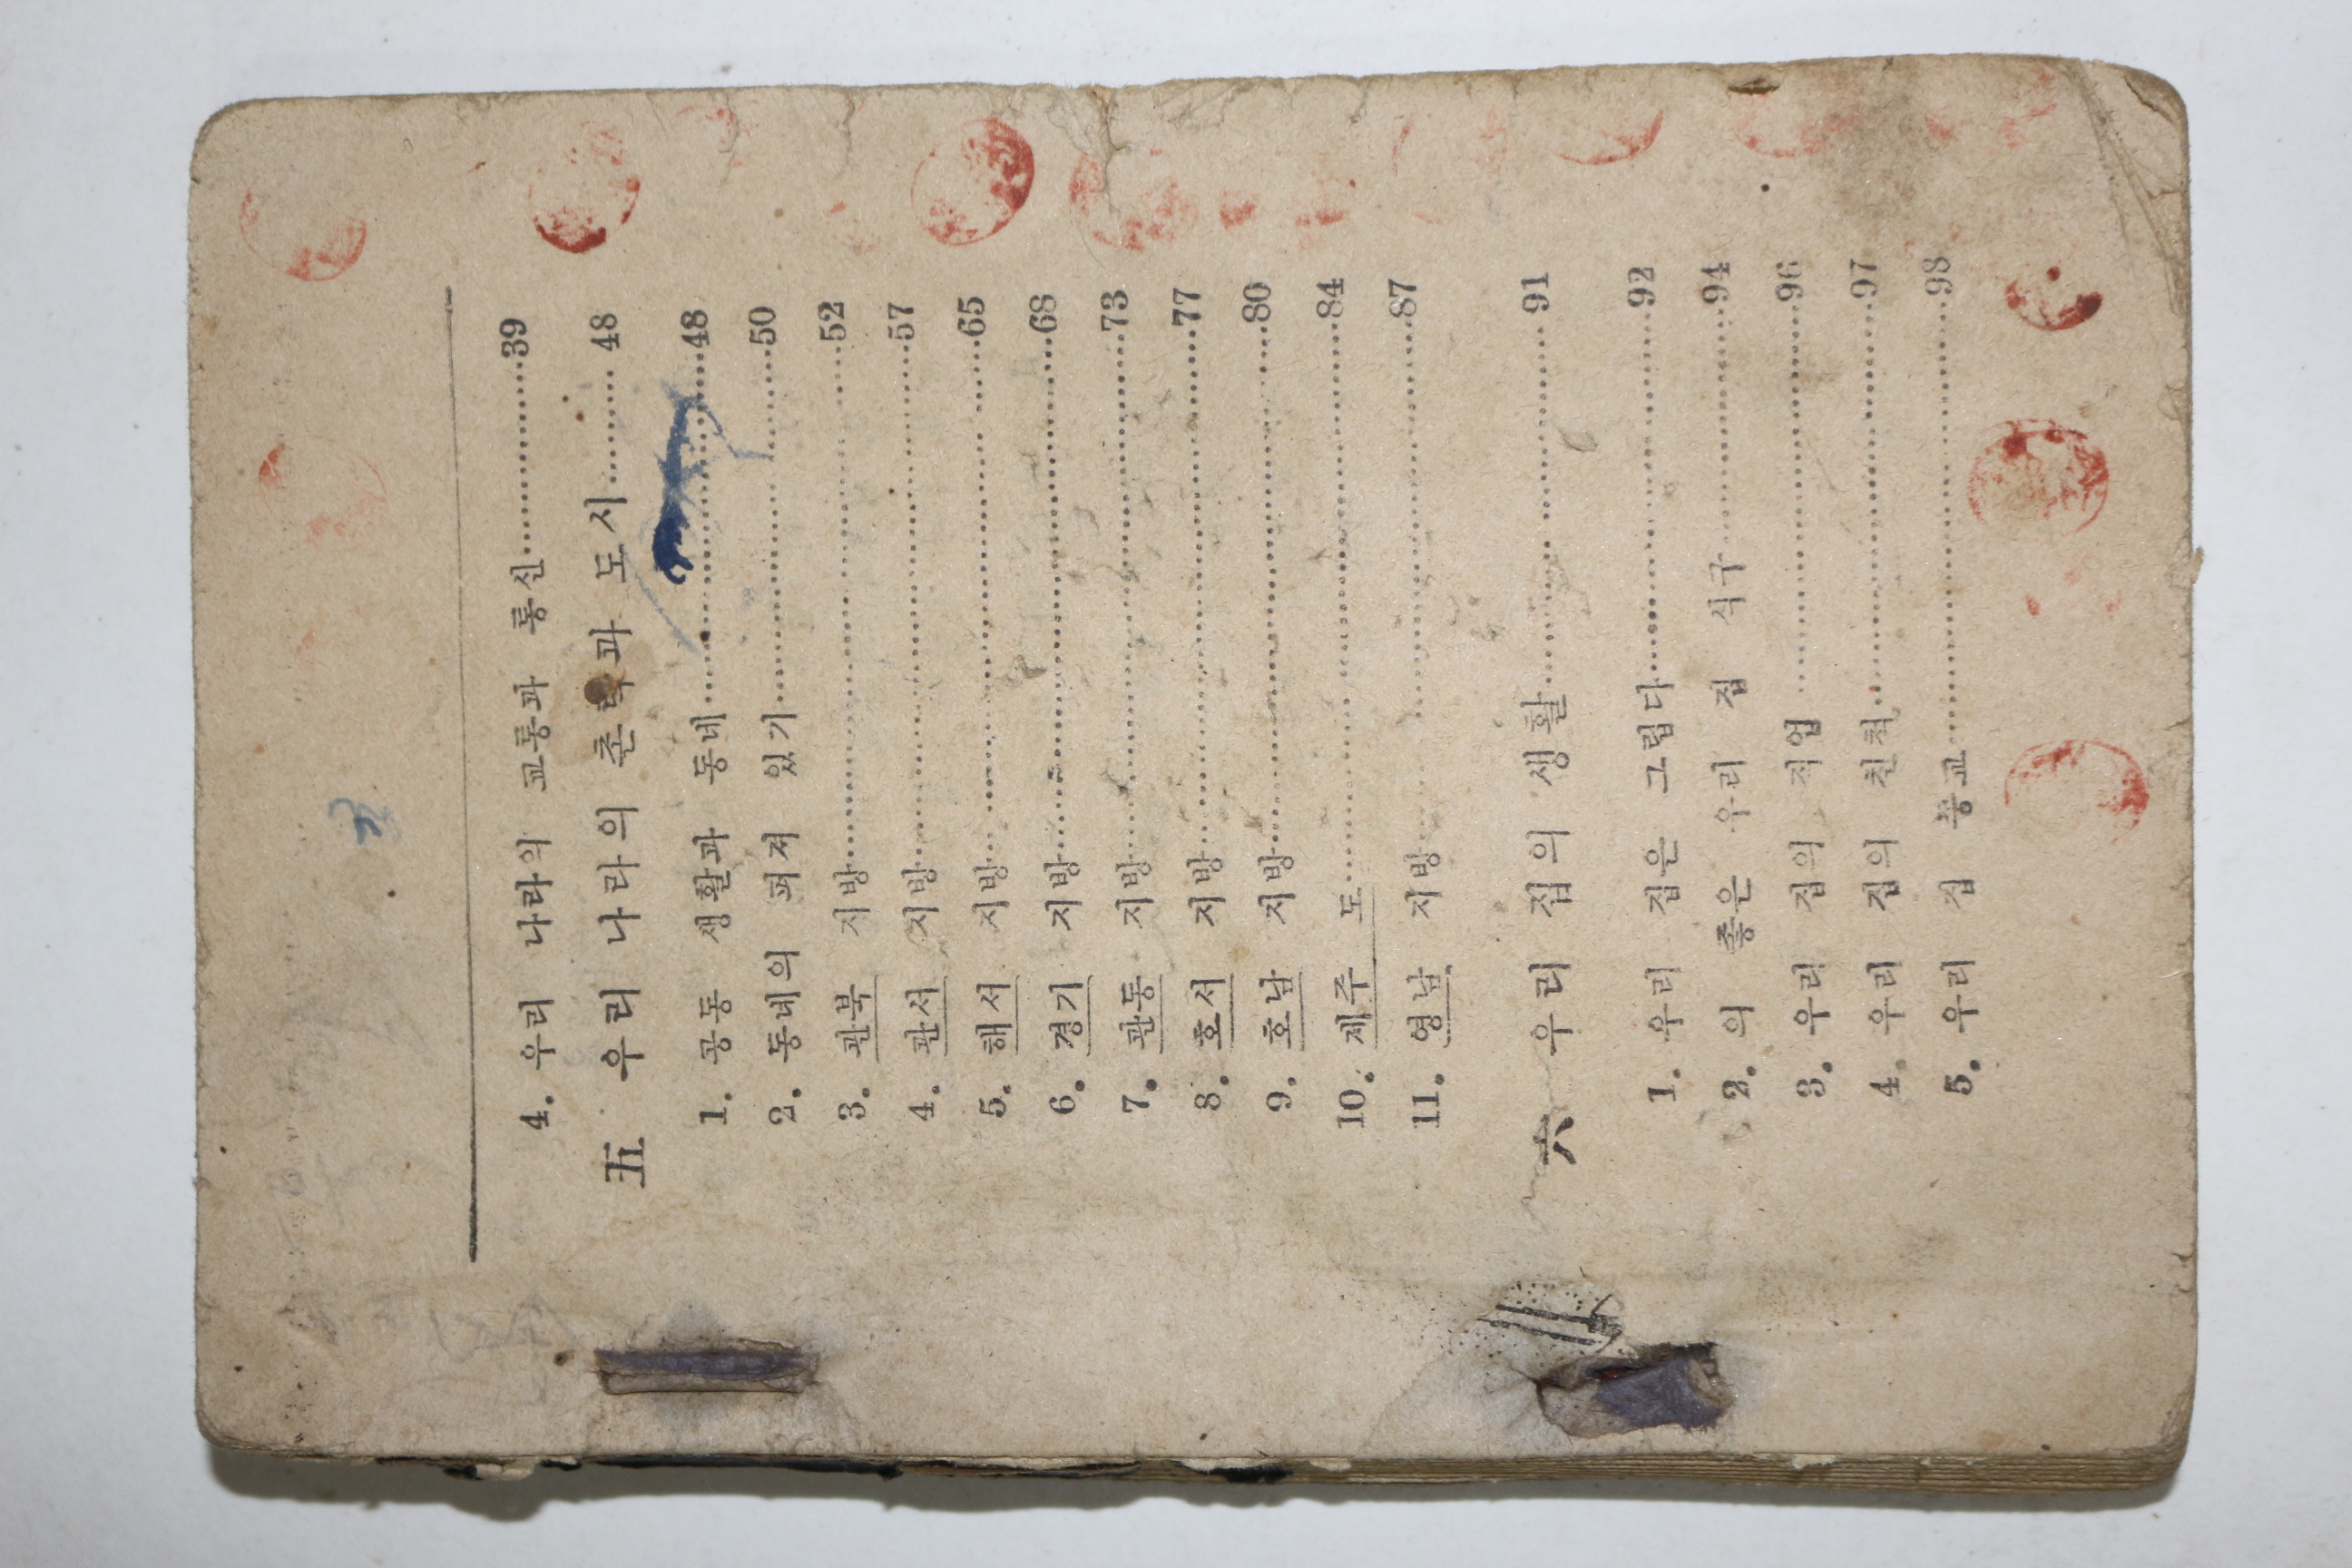 4. 우리 나라의 교통과 통신……………39
五 우리 나라의 촌락과 도시……… 48
1. 공동 생활과 동네……………………48
2. 동네의 펴져 있기……………………50
3. 관북 지방………………………………52
4. 관서 지방………………………………57
5. 해서 지방………………………………65
6. 경기 지방………………………………68
7. 관동 지방………………………………73
8. 호서 지방………………………………77
9. 호남 지방………………………………80
10. 제주 도…………………………………84
11. 영남 지방………………………………87
六 우리 집의 생활……………………… 91
1. 우리 집은 그립다……………………92
2. 의 좋은 우리 집 식구………………94
3. 우리 집의 직업………………………96
4. 우리 집의 친척………………………97
5. 우리 집 종교…………………………98